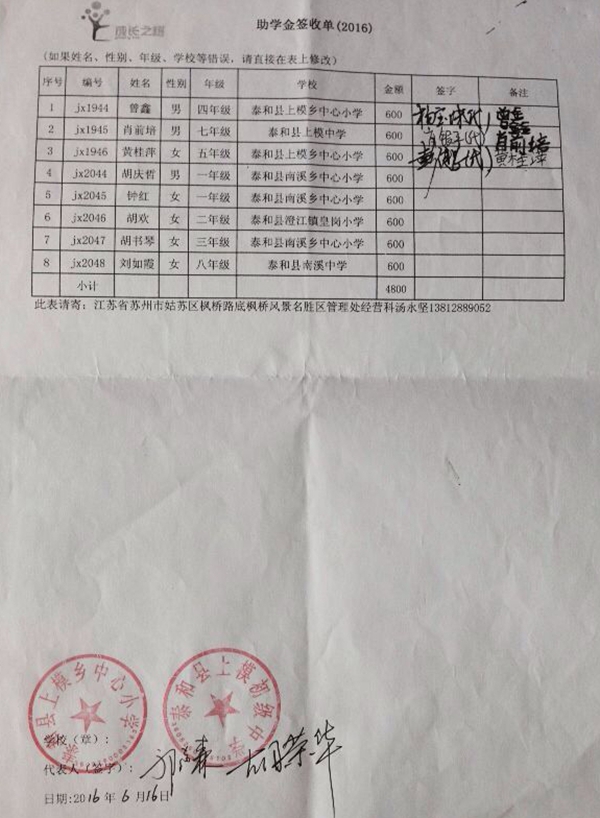 成长之翅
助学金签收单(2016)
(如果姓名、性别、年级、学校等错误，请直接在表上修改)
序号 编号 姓名 性别 年级 学校 金额 签字 备注
1 jx1944 曾鑫 男 四年级 泰和县上模乡中心小学 600 曾鑫
2 jx1945 肖前培 男 七年级 泰和县上模中学 600 肖前培
3 jx1946 黄桂萍 女 五年级 泰和县上模乡中心小学 600 黄桂萍
4 jx2044 胡庆哲 男 一年级 泰和县南溪乡中心小学 600
5 jx2045 钟红 女 一年级 泰和县南溪乡中心小学 600
6 jx2046 胡欢 女 二年级 泰和县澄江镇皇岗小学 600
7 jx2047 胡书琴 女 三年级 泰和县南溪乡中心小学 600
8 jx2048 刘如霞 女 八年级 泰和县南溪中学 600
小计 4800
此表请寄：江苏省苏州市姑苏区枫桥路底枫桥风景名胜区管理处经营科汤永坚13812889052
泰和县上模乡中心小学 泰和县上模初级中学
学校（章）：
代表人（签字）： 胡荣华
日期:2016年6月16日